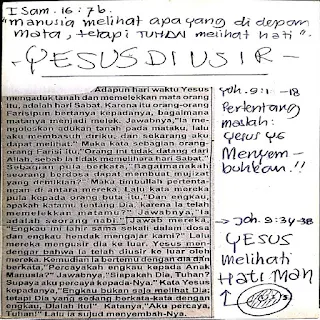 I Sam. 16:7b.
"manusia melihat apa yang di depan
mata, tetapi TUHAN melihat hati".
-YESUS DIUSIR-
Adapun hari waktu Yesus
mengaduk tanah dan memelekkan mata orang
itu, adalah hari Sabat. Karena itu orang-orang
Farisipun bertanya kepadanya, bagaimana
matanya menjadi melek. Jawabnya,"Ia me-
ngoleskan adukan tanah pada mataku, lalu
aku membasuh diriku, dan sekarang aku
dapat melihat." Maka kata sebagian orang-
orang Farisi itu,"Orang ini tidak datang dari
Allah, sebab Ia tidak memelihara hari Sabat."
Setengah pula berkata,"Bagaimanakah
seorang berdosa dapat membuat mujizat
yang demikian?" Maka timbullah pertentang-
an di antara mereka. Lalu kata mereka
pula kepada orang buta itu,"Dan engkau,
apakah katamu tentang Dia, karena Ia telah
memelekkan matamu?" Jawabnya,"Ia
adalah seorang nabi." Jawab mereka,
"Engkau ini lahir sama sekali dalam dosa
dan engkau hendak mengajar kami?" Lalu
mereka mengusir dia ke luar. Yesus men-
dengar bahwa ia telah diusir ke luar oleh
mereka. Kemudian Ia bertemu dengan dia dan
berkata,"Percayakah engkau kepada Anak
Manusia?" Jawabnya,"Siapakah Dia, Tuhan?
Supaya aku percaya kepada-Nya." Kata Yesus
kepadanya,"Engkau bukan saja melihat Dia;
tetapi Dia yang sedang berkata-kata dengan
engkau, Dialah itu!" Katanya,"Aku percaya,
Tuhan!" Lalu ia sujud menyembah-Nya.
Yoh. 9:1 -18
Pertentang
masalah:
Yesus yg
Menyem-
buhkan.!!
→ Joh. 9:34-38
YESUS
melihat
Hati